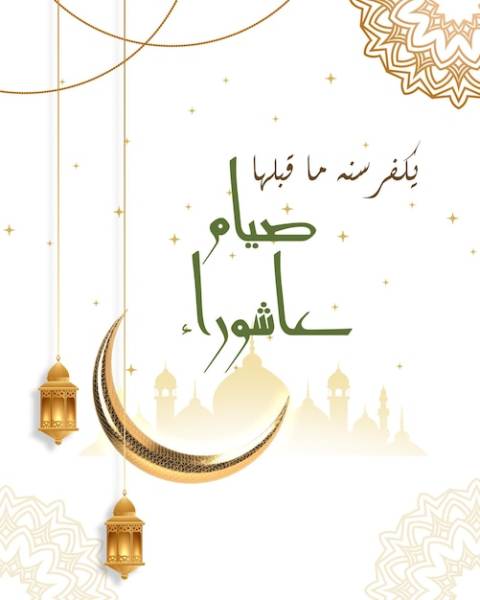 يكفر سنه ما قبلها
صيام
عاشوراء